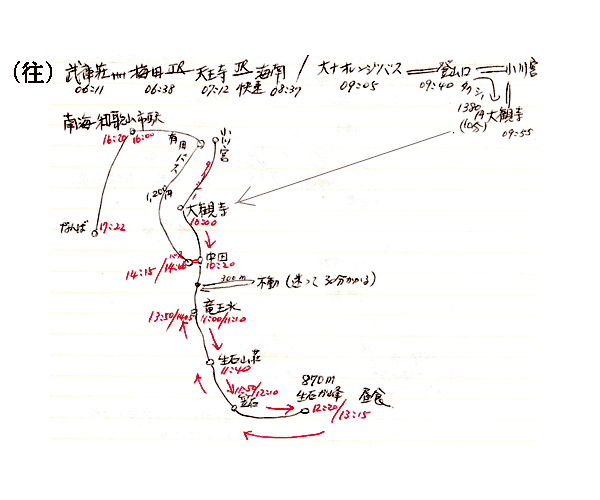 (往) 武庫荘 梅田 JR 天王寺 JR 海南 / 大十オレンジバス 登山口 小川宮
06:11 06:38 07:12 快速 08:37 09:05 09:40 タクシー
1380円 大観寺
(10分) 09:55
南海-和歌山市駅
16:20 16:00
有田バス
小川宮
1,20円
大観寺
10:00
なんば 17:22
バス 中田
14:15/14:08 10:20
300m 不動(迷って30分かかる)
竜王水
13:50/14:05 11:00/11:10
生石山荘
11:40
11:50/12:10
笠石
870m
生石ヶ峰 昼食
12:20/13:15